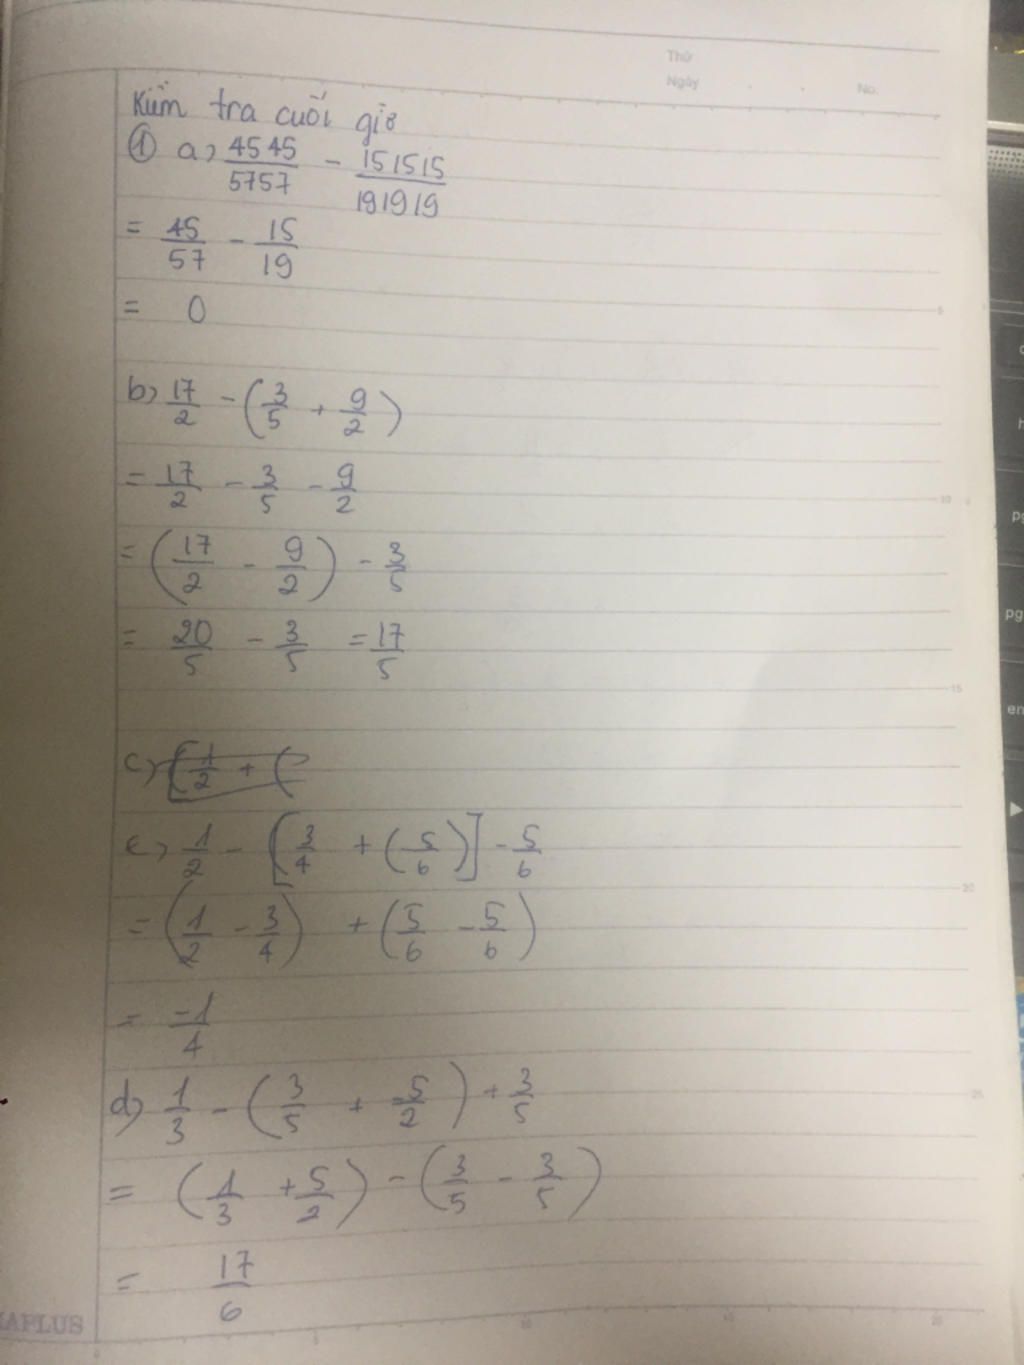 Thứ
Ngày No.
Kiểm tra cuối giờ
① a, 4545/5757 - 151515/191919
= 45/57 - 15/19
= 0
b, 17/2 - (3/5 + 9/2)
= 17/2 - 3/5 - 9/2
= (17/2 - 9/2) - 3/5
= 20/5 - 3/5 = 17/5
c, [1/2 + (
c, 1/2 - [3/4 + (-5/6)] - 5/6
= (1/2 - 3/4) + (5/6 - 5/6)
= -1/4
d, 1/3 - (3/5 + -5/2) + 3/5
= (1/3 + 5/2) - (3/5 - 3/5)
= 17/6